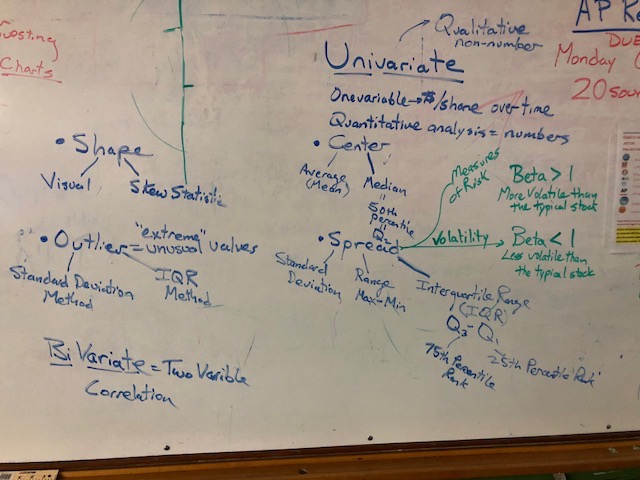 Charts
AP
DUE
Monday
20
Qualitative
non-number
Univariate
One variable → $/share over time
Quantitative analysis = numbers
• Shape
Visual
Skew Statistic
• Outlier = "extreme" unusual valves
Standard Deviation
Method
IQR
Method
Bi Variate = Two Varible
Correlation
• Center
Average
(Mean)
Median
=
50th
percentile
=
Q2
• Spread
Standard
Deviation
Range
Max-Min
Interquartile Range
(IQR)
Q3 - Q1
75th Percentile
Rank
25th Percentile Rank
Measures
of Risk
Volatility
Beta > 1
More Volatile than
the typical stock
Beta < 1
Less volatile than
the typical stock